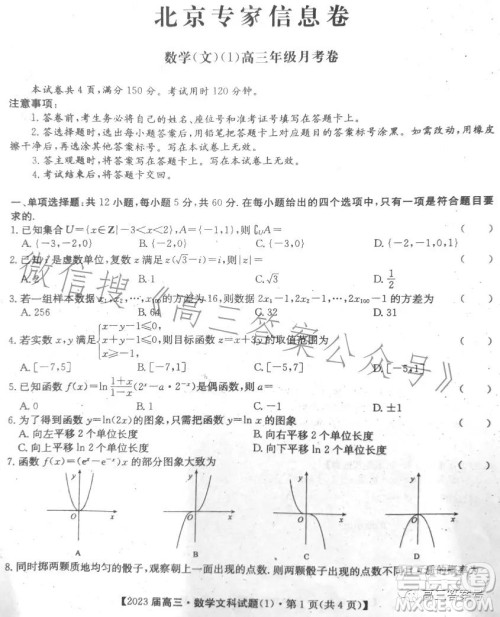 北京专家信息卷
数学(文)(1)高三年级月考卷
本试卷共4页,满分150分。考试用时120分钟。
注意事项:
1.答卷前,考生务必将自己的姓名、座位号和准考证号填写在答题卡上。
2.作答选择题时,选出每小题答案后,用铅笔把答题卡上的答案标号涂黑。如需改动,用橡皮
擦干净后,再选涂其他答案标号。
3.答主观题时,将答案写在答题卡上。
4.考试结束后,将答题卡交回。
一、单项选择题:共12小题,每小题5分,共60分。在每小题给出的四个选项中,只有一项是符合题目要
求的.
1.已知集合U={x∈Z|-3<x<2},A={-1,1},则∁UA= ( )
A.{-3,-2,0} B.{-2,0} C.{-2} D.{-3,-2}
2.已知i是虚数单位,复数z满足z(√3-i)=i,则|z|= ( )
A.2 B.1 C.√3 D.1/2
3.若一组样本数据x1,x2,…,x100的方差为16,则数据2x1-1,2x2-1,…,2x100-1的方差为 ( )
A.256 B.64 C.16 D.8
4.若实数x,y满足{x-y-1≤0, x+y-1≤0,
A.[-7,5] C.[-5,7]
5.已知函数f(x)=ln 1+x/1-x (2^x-a·2^-x)
A.0 D.±1
6.为了得到函数y=ln(2x)的图象,只需把函数y=ln x的图象 ( )
A.向左平移2个单位长度 B.向上平移2个单位长度
C.向左平移ln 2个单位长度 D.向上平移ln 2个单位长度
7.函数f(x)=(e^x-e^-x)x的部分图象大致为 ( )
y y y y
O x O x O x O x
A B C D
8.同时掷两颗质地均匀的骰子,观察向上的点数,则两颗骰子出现的点数
【2023届高三·数学文科试题(1)·第1页(共4页)】
微信搜《高三答案公众号》